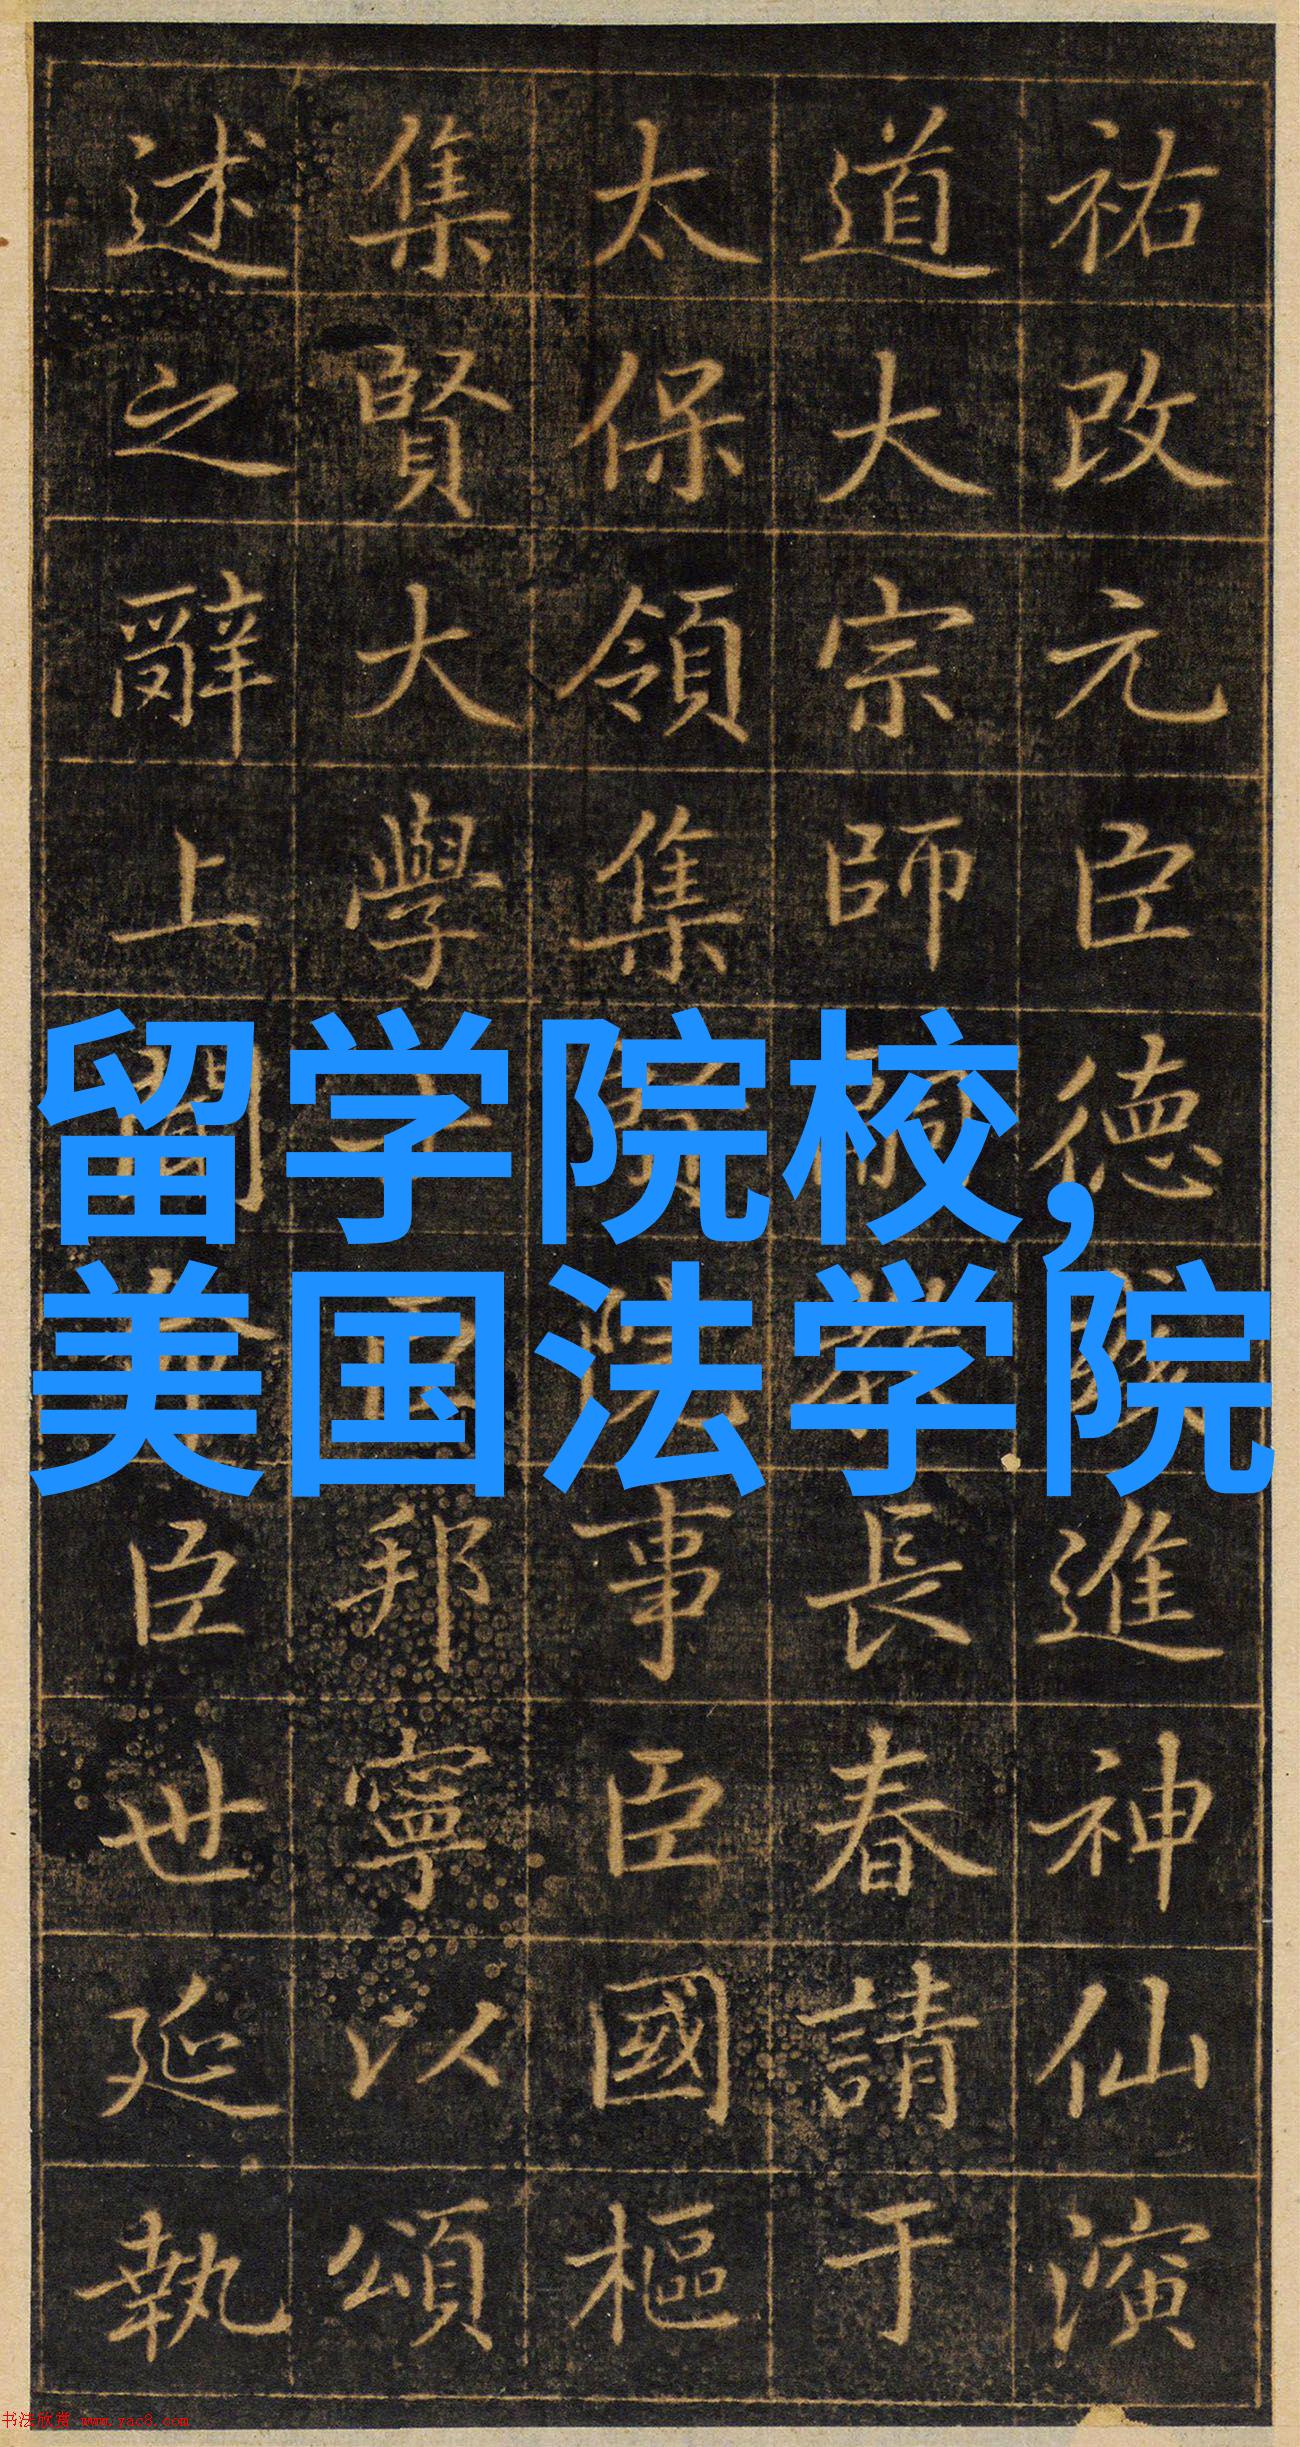 祐改元臣德進神仙演
道大宗師長春請于
太保領集院事臣國樞
集賢大學士臣邦寧以頌
述之辭上聞臣世延執
留学院校,
美国法学院
书法欣赏 www.yac8.com